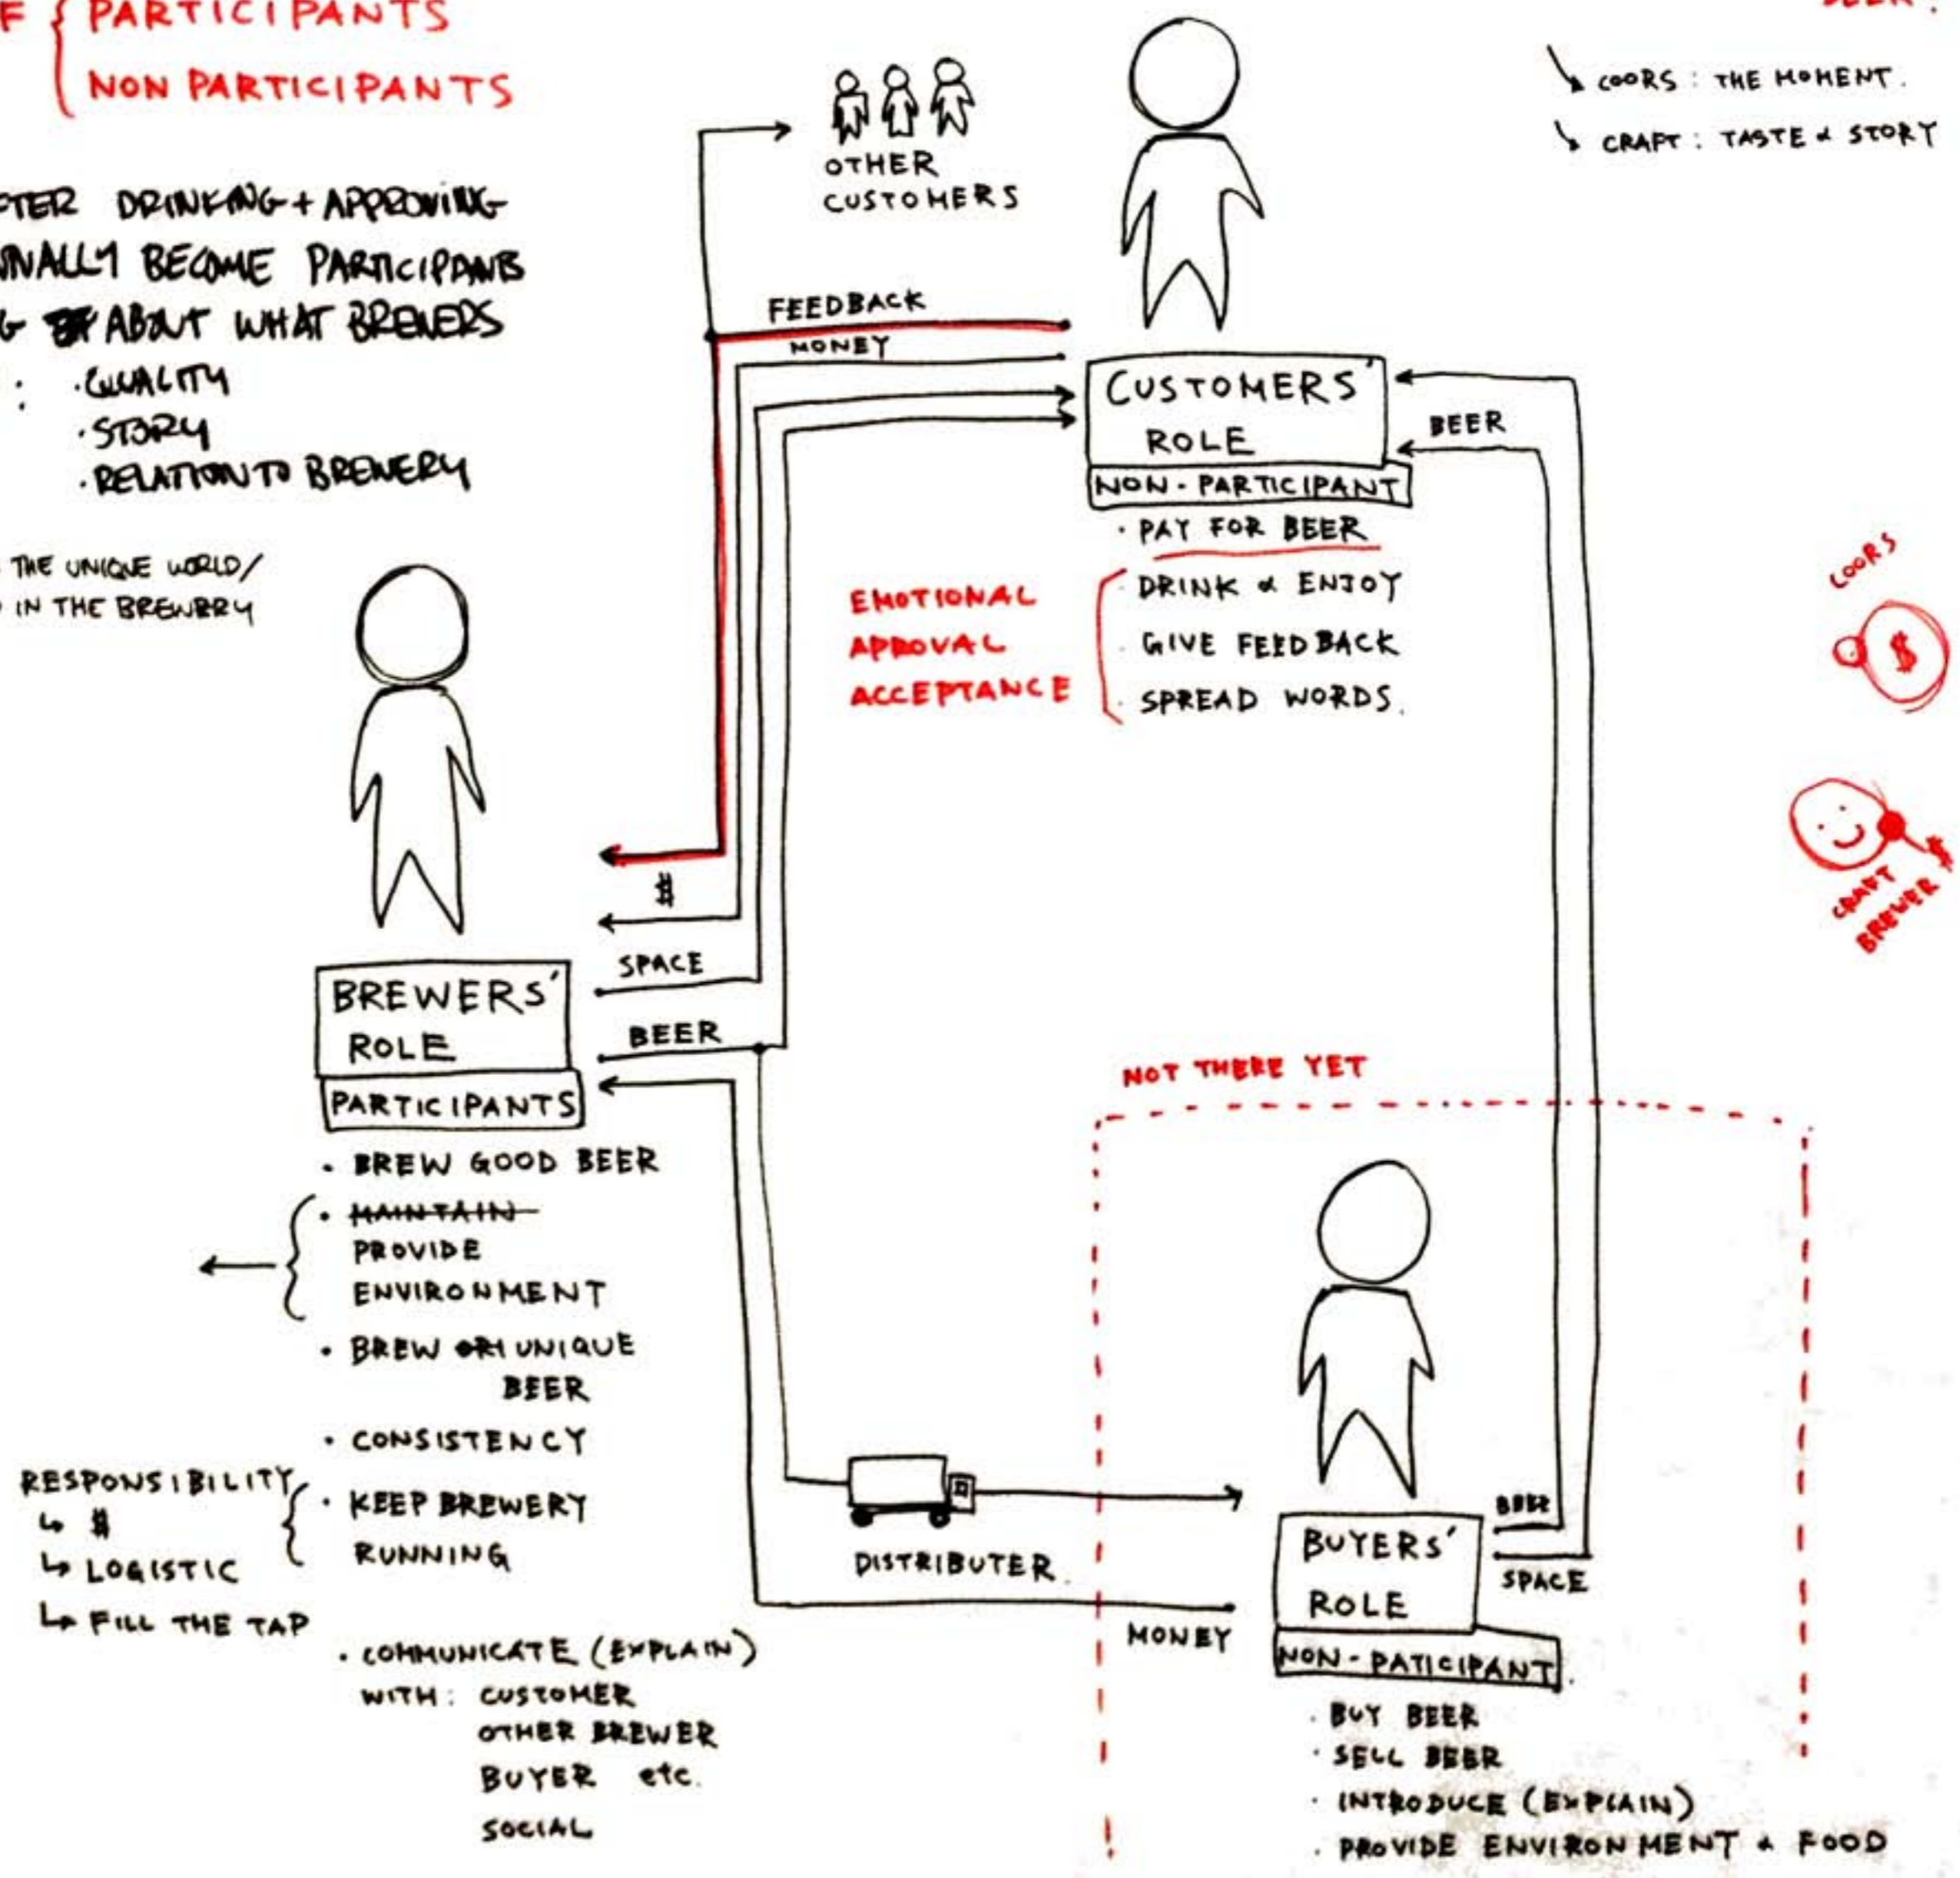 F { PARTICIPANTS
NON PARTICIPANTS
BEER.
COORS : THE MOMENT.
CRAFT : TASTE & STORY
OTHER
CUSTOMERS
TER DRINKING + APPROVING
NALLY BECOME PARTICIPANTS
G ABOUT WHAT BREWERS
: · QUALITY
· STORY
· RELATION TO BREWERY
THE UNIQUE WORLD/
IN THE BREWERY
FEEDBACK
MONEY
CUSTOMERS'
ROLE
NON-PARTICIPANT
· PAY FOR BEER
· DRINK & ENJOY
· GIVE FEEDBACK
· SPREAD WORDS.
EMOTIONAL
APROVAL
ACCEPTANCE
BEER
COORS
$
$
CRAFT
BREWER
$
SPACE
BEER
BREWERS'
ROLE
PARTICIPANTS
· BREW GOOD BEER
· MAINTAIN
PROVIDE
ENVIRONMENT
· BREW UNIQUE
BEER
· CONSISTENCY
· KEEP BREWERY
RUNNING
RESPONSIBILITY
↳ $
↳ LOGISTIC
↳ FILL THE TAP
· COMMUNICATE (EXPLAIN)
WITH : CUSTOMER
OTHER BREWER
BUYER etc.
SOCIAL
NOT THERE YET
DISTRIBUTER.
MONEY
BEER
SPACE
BUYERS'
ROLE
NON-PATICIPANT.
· BUY BEER
· SELL BEER
· INTRODUCE (EXPLAIN)
· PROVIDE ENVIRONMENT & FOOD